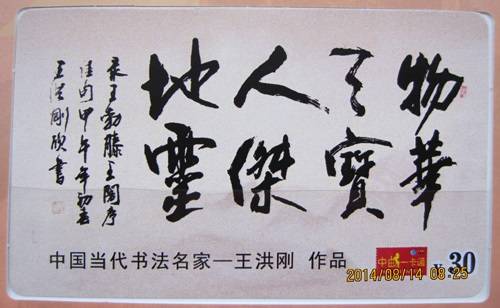 物華
天寶
人傑
地靈
录王勃滕王閣序
佳句甲午年初春
王洪剛欣書
中国当代书法名家—王洪刚 作品
一卡通
¥30
2014/08/14 08:25